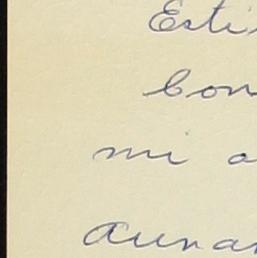 Esti
Con
mi a
aunan